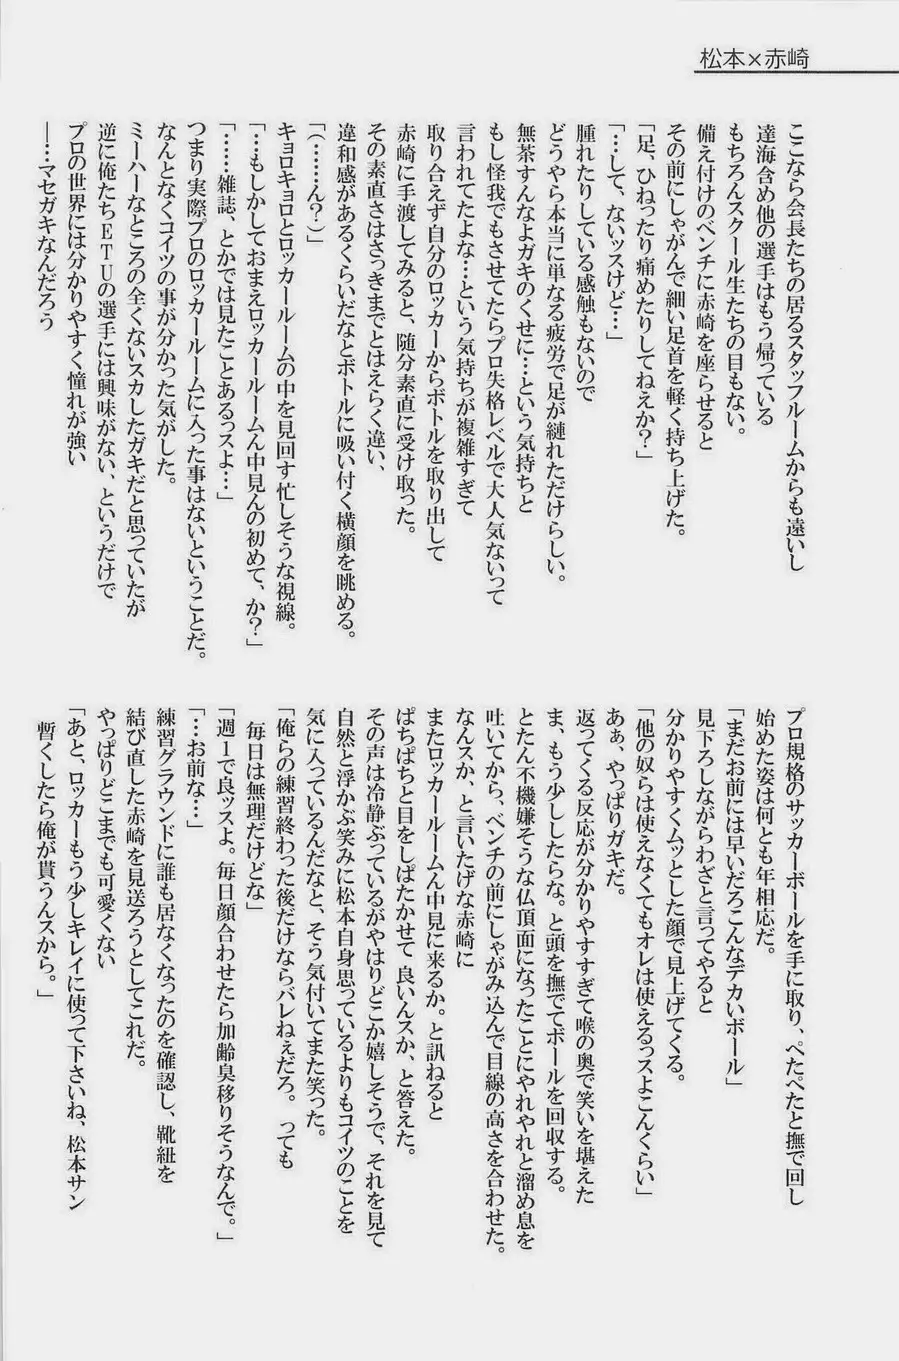 松本×赤崎
ここなら会長たちの居るスタッフルームからも遠いし
達海含め他の選手はもう帰っている
もちろんスクール生たちの目もない。
備え付けのベンチに赤崎を座らせると
その前にしゃがんで細い足首を軽く持ち上げた。
「足、ひねったり痛めたりしてねえか？」
「…して、ないッスけど…」
腫れたりしている感触もないので
どうやら本当に単なる疲労で足が縺れただけらしい。
無茶すんなよガキのくせに…という気持ちと
もし怪我でもさせてたらプロ失格レベルで大人気ないって
言われてたよな…という気持ちが複雑すぎて
取り合えず自分のロッカーからボトルを取り出して
赤崎に手渡してみると、随分素直に受け取った。
その素直さはさっきまでとはえらく違い、
違和感があるくらいだなとボトルに吸い付く横顔を眺める。
「（……ん？）」
キョロキョロとロッカールームの中を見回す忙しそうな視線。
「…もしかしておまえロッカールームん中見んの初めて、か？」
「……雑誌、とかでは見たことあるっスよ…」
つまり実際プロのロッカールームに入った事はないということだ。
なんとなくコイツの事が分かった気がした。
ミーハーなところの全くないスカしたガキだと思っていたが
逆に俺たちＥＴＵの選手には興味がない、というだけで
プロの世界には分かりやすく憧れが強い
――…マセガキなんだろう
プロ規格のサッカーボールを手に取り、ぺたぺたと撫で回し
始めた姿は何とも年相応だ。
「まだお前には早いだろこんなデカいボール」
見下ろしながらわざと言ってやると
分かりやすくムッとした顔で見上げてくる。
「他の奴らは使えなくてもオレは使えるっスよこんくらい」
あぁ、やっぱりガキだ。
返ってくる反応が分かりやすすぎて喉の奥で笑いを堪えた
ま、もう少ししたらな。と頭を撫でてボールを回収する。
とたん不機嫌そうな仏頂面になったことにやれやれと溜め息を
吐いてから、ベンチの前にしゃがみ込んで目線の高さを合わせた。
なんスか、と言いたげな赤崎に
またロッカールームん中見に来るか。と訊ねると
ぱちぱちと目をしばたかせて 良いんスか、と答えた。
その声は冷静ぶっているがやはりどこか嬉しそうで、それを見て
自然と浮かぶ笑みに松本自身思っているよりもコイツのことを
気に入っているんだなと、そう気付いてまた笑った。
「俺らの練習終わった後だけならバレねぇだろ。 っても
毎日は無理だけどな」
「週１で良ッスよ。毎日顔合わせたら加齢臭移りそうなんで。」
「…お前な…」
練習グラウンドに誰も居なくなったのを確認し、靴紐を
結び直した赤崎を見送ろうとしてこれだ。
やっぱりどこまでも可愛くない
「あと、ロッカーもう少しキレイに使って下さいね、松本サン
暫くしたら俺が貰うんスから。」